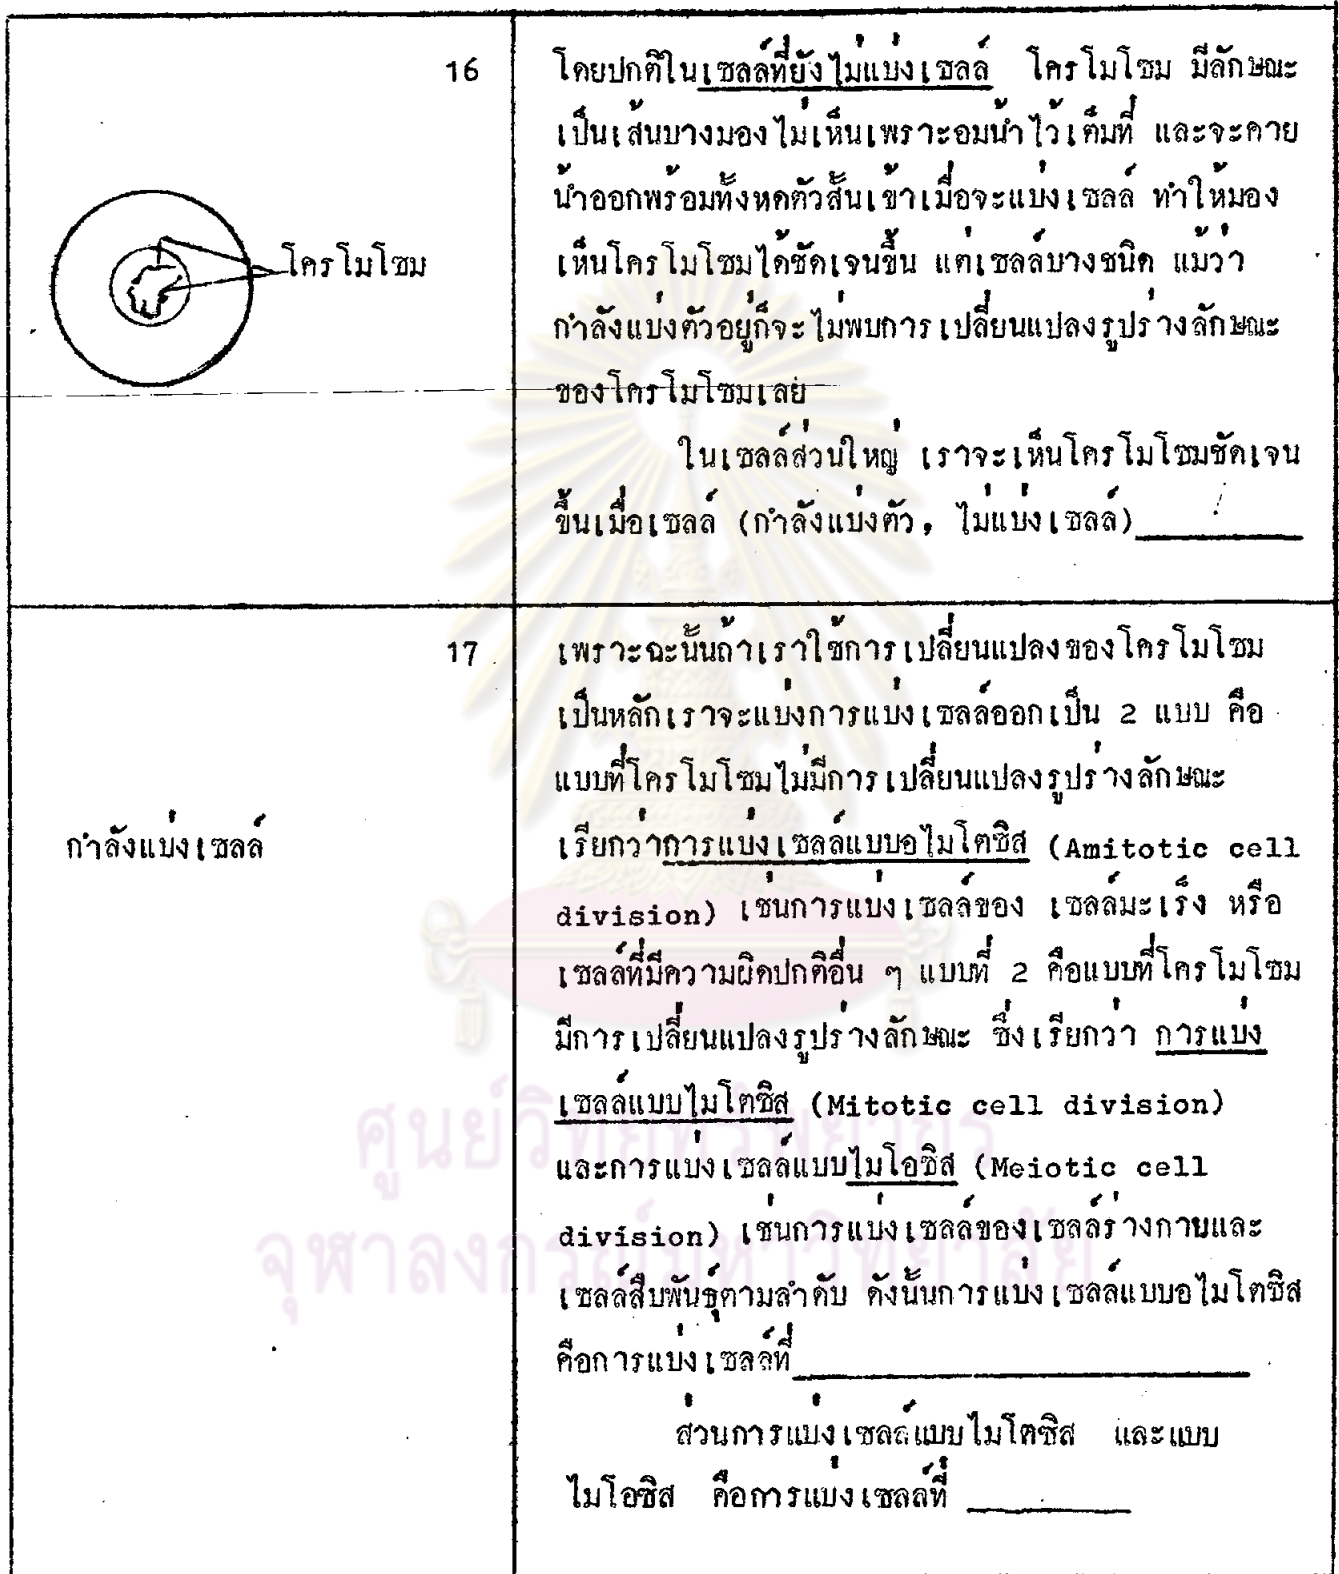 16
โดยปกติในเซลล์ที่ยังไม่แบ่งเซลล์ โครโมโซม มีลักษณะ
เป็นเส้นบางมองไม่เห็นเพราะอมน้ำไว้เต็มที่ และจะคาย
น้ำออกพร้อมทั้งหดตัวสั้นเข้าเมื่อจะแบ่งเซลล์ ทำให้มอง
เห็นโครโมโซมได้ชัดเจนขึ้น แต่เซลล์บางชนิด แม้ว่า
กำลังแบ่งตัวอยู่ก็จะไม่พบการเปลี่ยนแปลงรูปร่างลักษณะ
ของโครโมโซมเลย
ในเซลล์ส่วนใหญ่ เราจะเห็นโครโมโซมชัดเจน
ขึ้นเมื่อเซลล์ (กำลังแบ่งตัว, ไม่แบ่งเซลล์)
โครโมโซม
17
เพราะฉะนั้นถ้าเราใช้การเปลี่ยนแปลงของโครโมโซม
เป็นหลักเราจะแบ่งการแบ่งเซลล์ออกเป็น 2 แบบ คือ
แบบที่โครโมโซมไม่มีการเปลี่ยนแปลงรูปร่างลักษณะ
เรียกว่าการแบ่งเซลล์แบบอไมโตซิส (Amitotic cell
division) เช่นการแบ่งเซลล์ของ เซลล์มะเร็ง หรือ
เซลล์ที่มีความผิดปกติอื่น ๆ แบบที่ 2 คือแบบที่โครโมโซม
มีการเปลี่ยนแปลงรูปร่างลักษณะ ซึ่งเรียกว่า การแบ่ง
เซลล์แบบไมโตซิส (Mitotic cell division)
และการแบ่งเซลล์แบบไมโอซิส (Meiotic cell
division) เช่นการแบ่งเซลล์ของเซลล์ร่างกายและ
เซลล์สืบพันธุ์ตามลำดับ ดังนั้นการแบ่งเซลล์แบบอไมโตซิส
คือการแบ่งเซลล์ที่
ส่วนการแบ่งเซลล์แบบไมโตซิส และแบบ
ไมโอซิส คือการแบ่งเซลล์ที่
กำลังแบ่งเซลล์
ศูนย์วิทยทรัพยากร
จุฬาลงกรณ์มหาวิทยาลัย